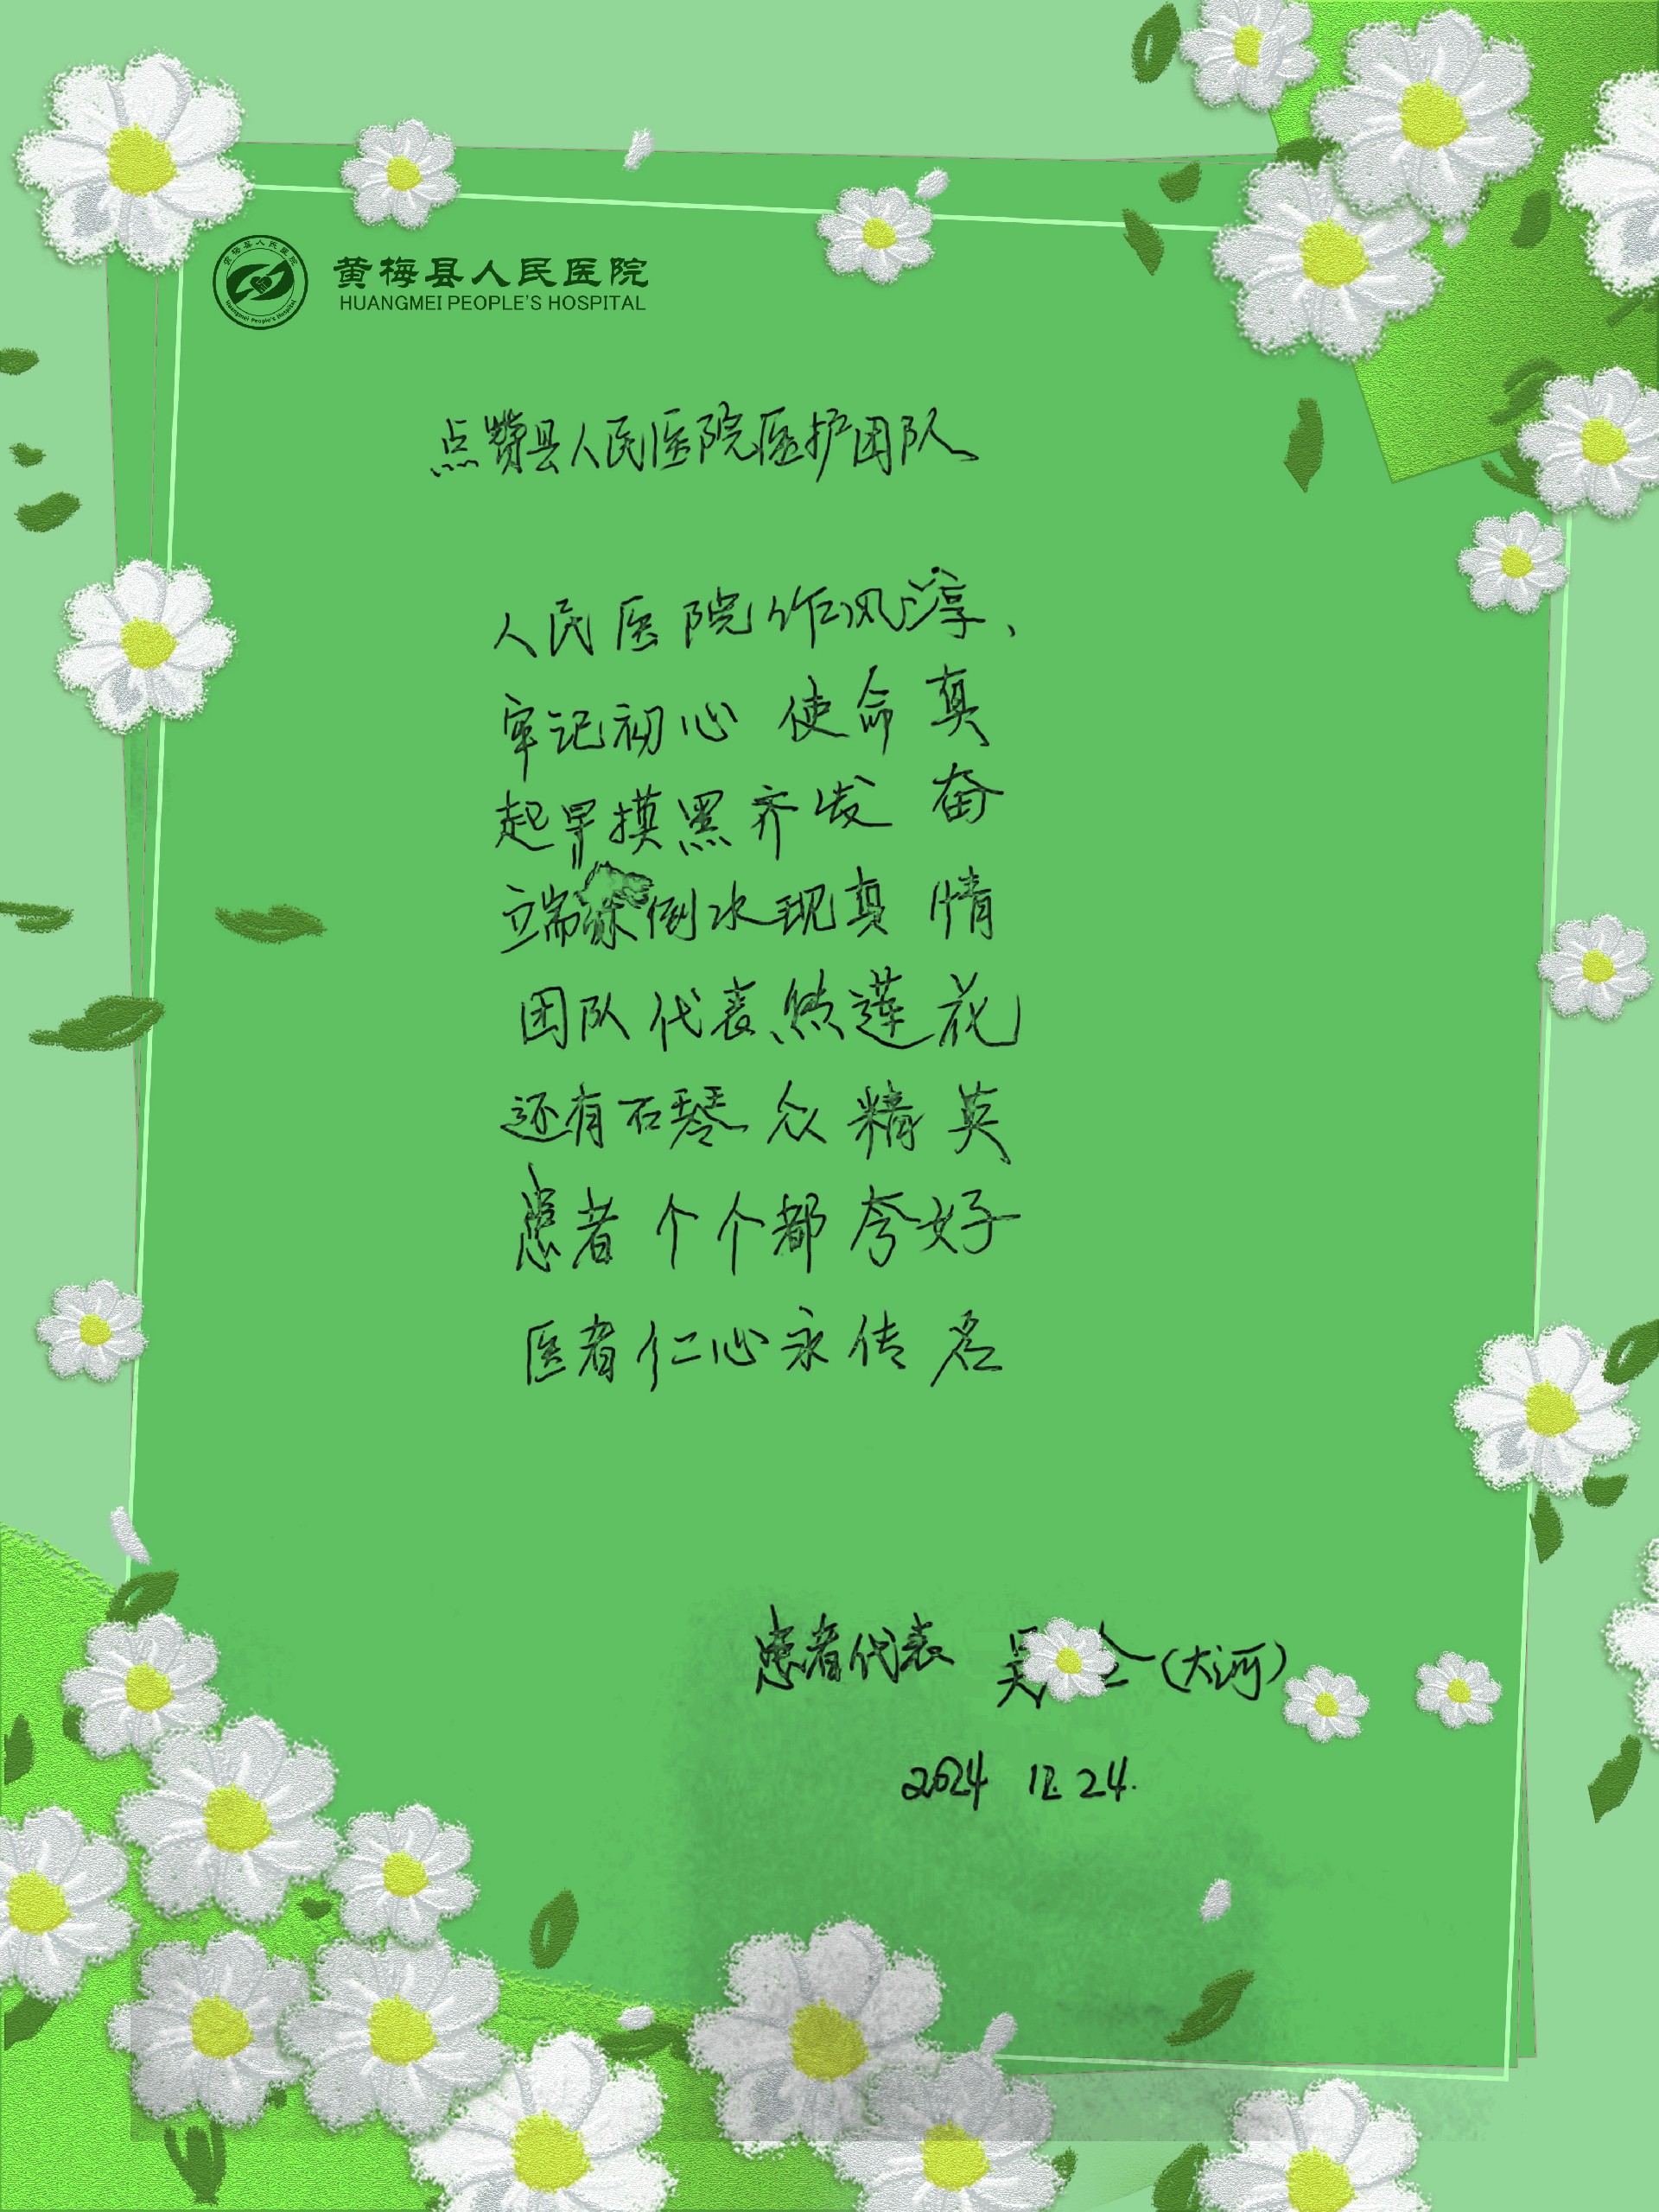 黄梅县人民医院
HUANGMEI PEOPLE'S HOSPITAL
点赞县人民医院医护团队
人民医院作风淳、
牢记初心使命真
起早摸黑齐发奋
端茶倒水现真情
团队代表熊莲花
还有石琴众精英
患者个个都夸好
医者仁心永传名
患者代表 吴 (大河)
2024 12. 24.